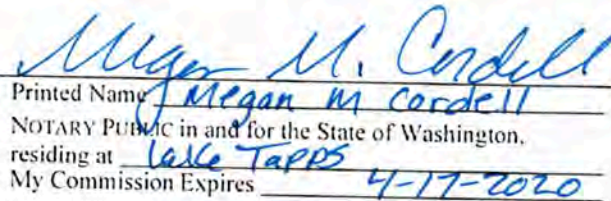 Megan M. Cordell
Printed Name Megan M Cordell
NOTARY PUBLIC in and for the State of Washington,
residing at Lake Tapps
My Commission Expires 4-17-2020